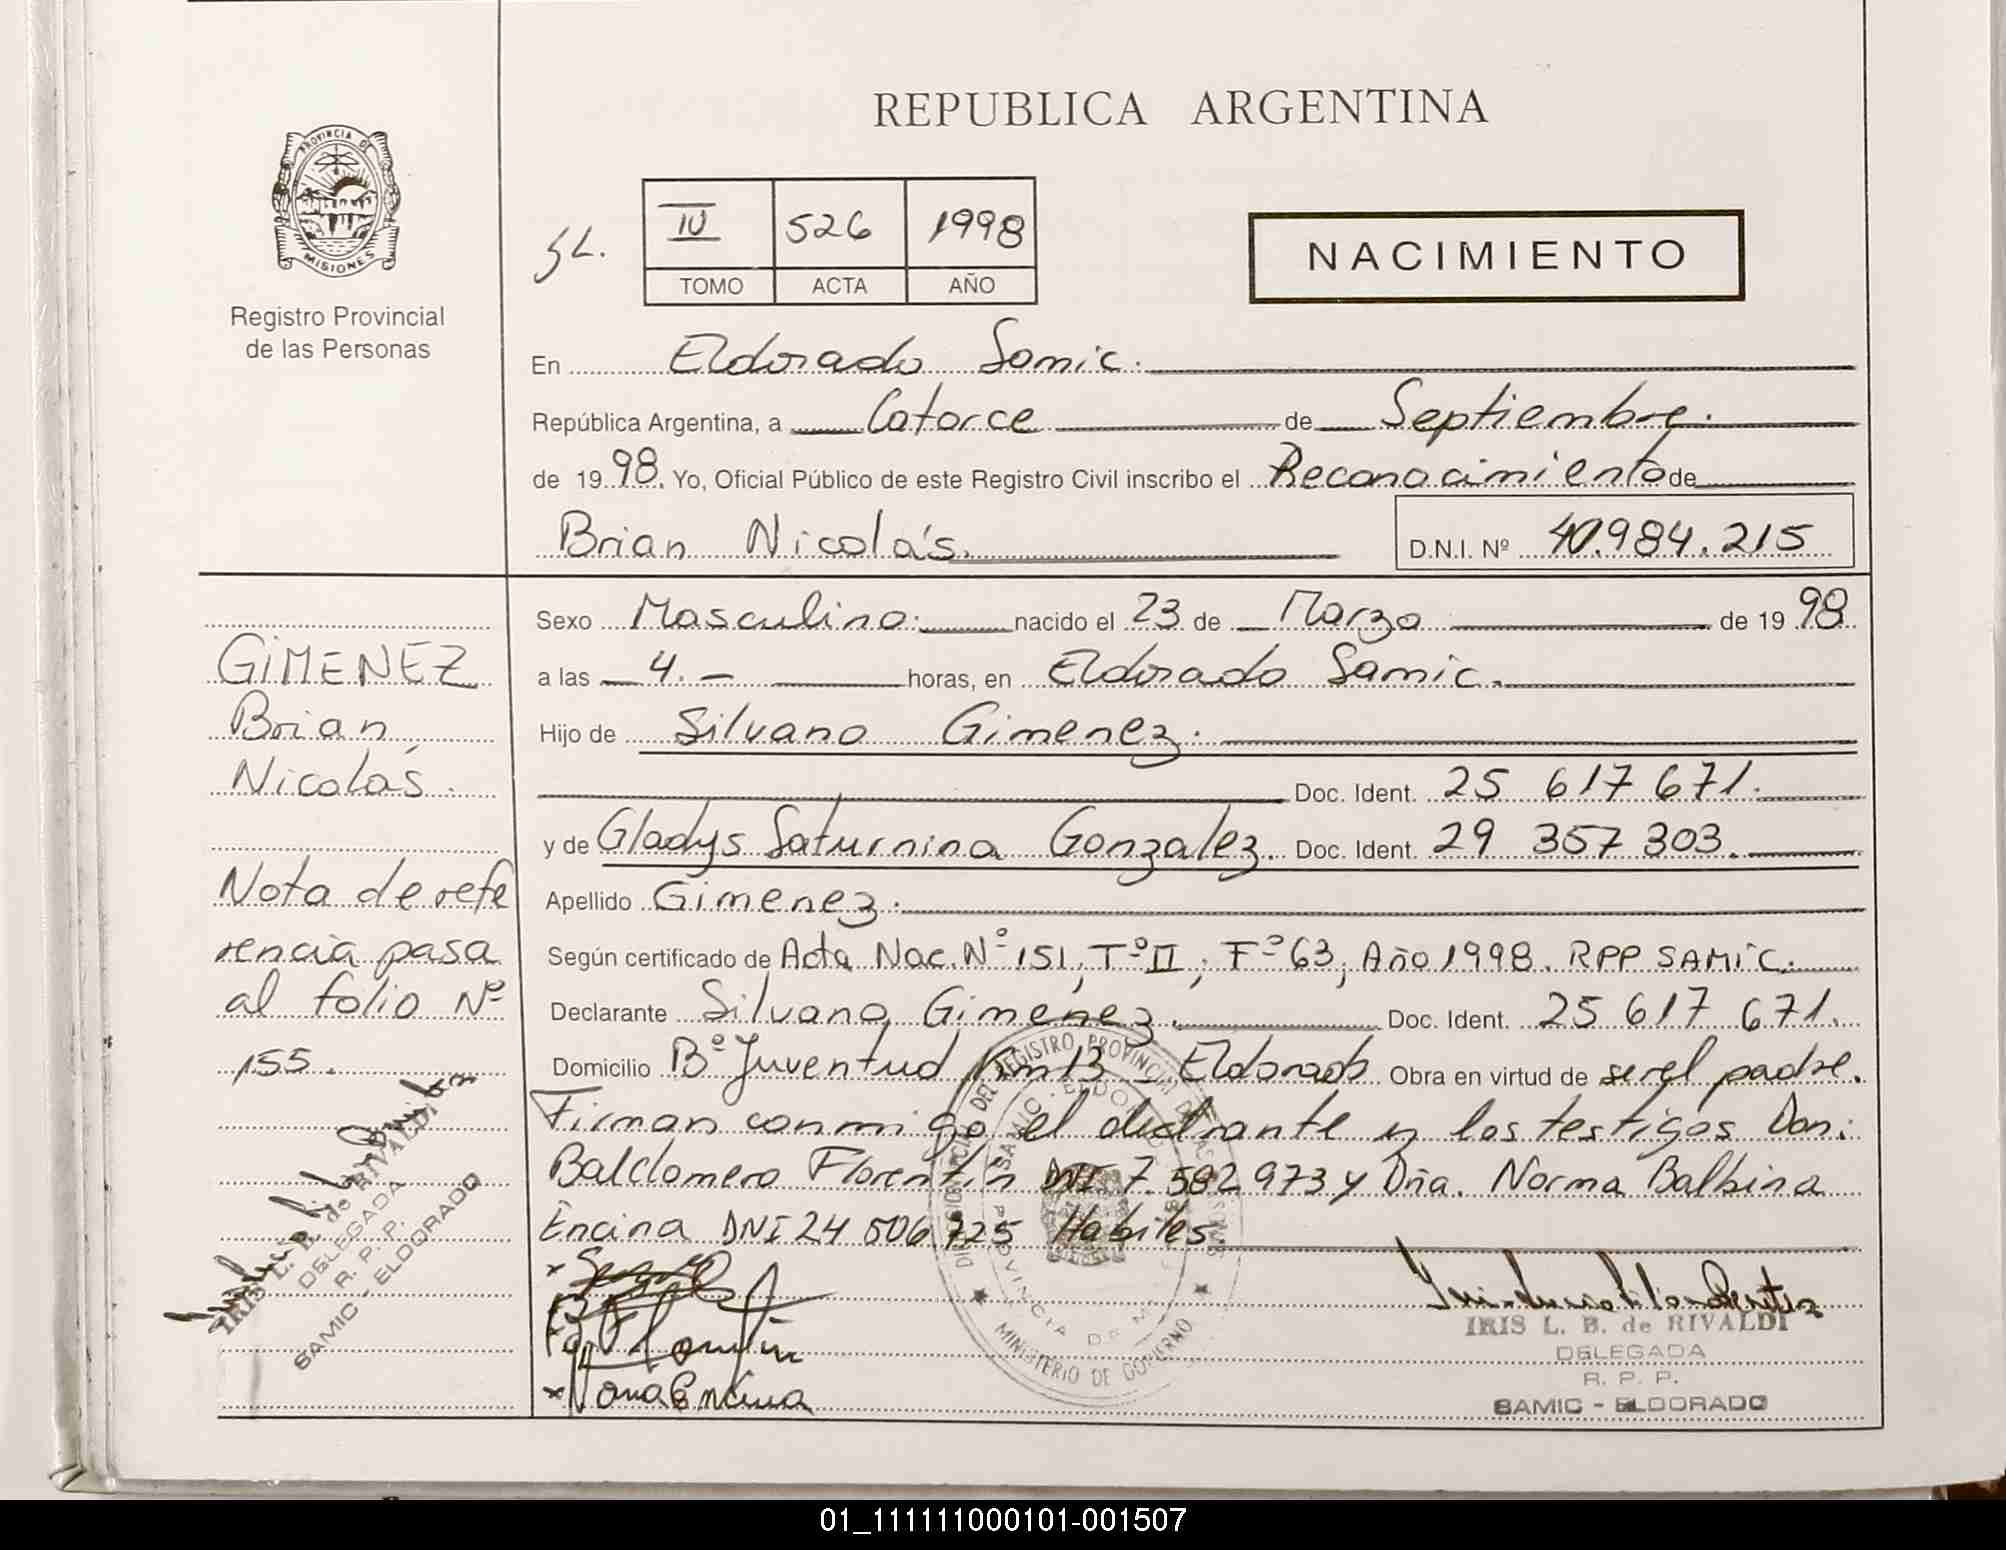 REPUBLICA ARGENTINA
PROVINCIA DE
MISIONES
Registro Provincial
de las Personas
IV 526 1998
TOMO ACTA AÑO
NACIMIENTO
En Eldorado Samic.
República Argentina, a Catorce de Septiembre.
de 1998. Yo, Oficial Público de este Registro Civil inscribo el Reconocimiento de
Brian Nicolás. D.N.I. Nº 40.984.215
Sexo Masculino. nacido el 23 de Marzo de 1998
a las 4.- horas, en Eldorado Samic.
Hijo de Silvano Gimenez.
Doc. Ident. 25 617 671.
y de Gladys Saturnina Gonzalez. Doc. Ident. 29 357 303.
Apellido Gimenez.
Según certificado de Acta Nac. Nº 151, Tº II; Fº 63; Año 1998. RPP SAMIC.
Declarante Silvano Gimenez. Doc. Ident. 25 617 671.
Domicilio Bº Juventud Km 13 - Eldorado Obra en virtud de ser el padre.
Firman conmigo el declarante y los testigos Don:
Baldomero Florentín DNI 7.582 973 y Dña. Norma Balbina
Encina DNI 24 506 725 Habiles.
GIMENEZ
Brian
Nicolás.
Nota de refe
rencia pasa
al folio Nº
155.
IRIS L. B. de RIVALDI
DELEGADA
R. P. P.
SAMIC - ELDORADO
IRIS L. B. de RIVALDI
DELEGADA
R. P. P.
SAMIC - ELDORADO
MINISTERIO DE GOBIERNO
01_111111000101-001507